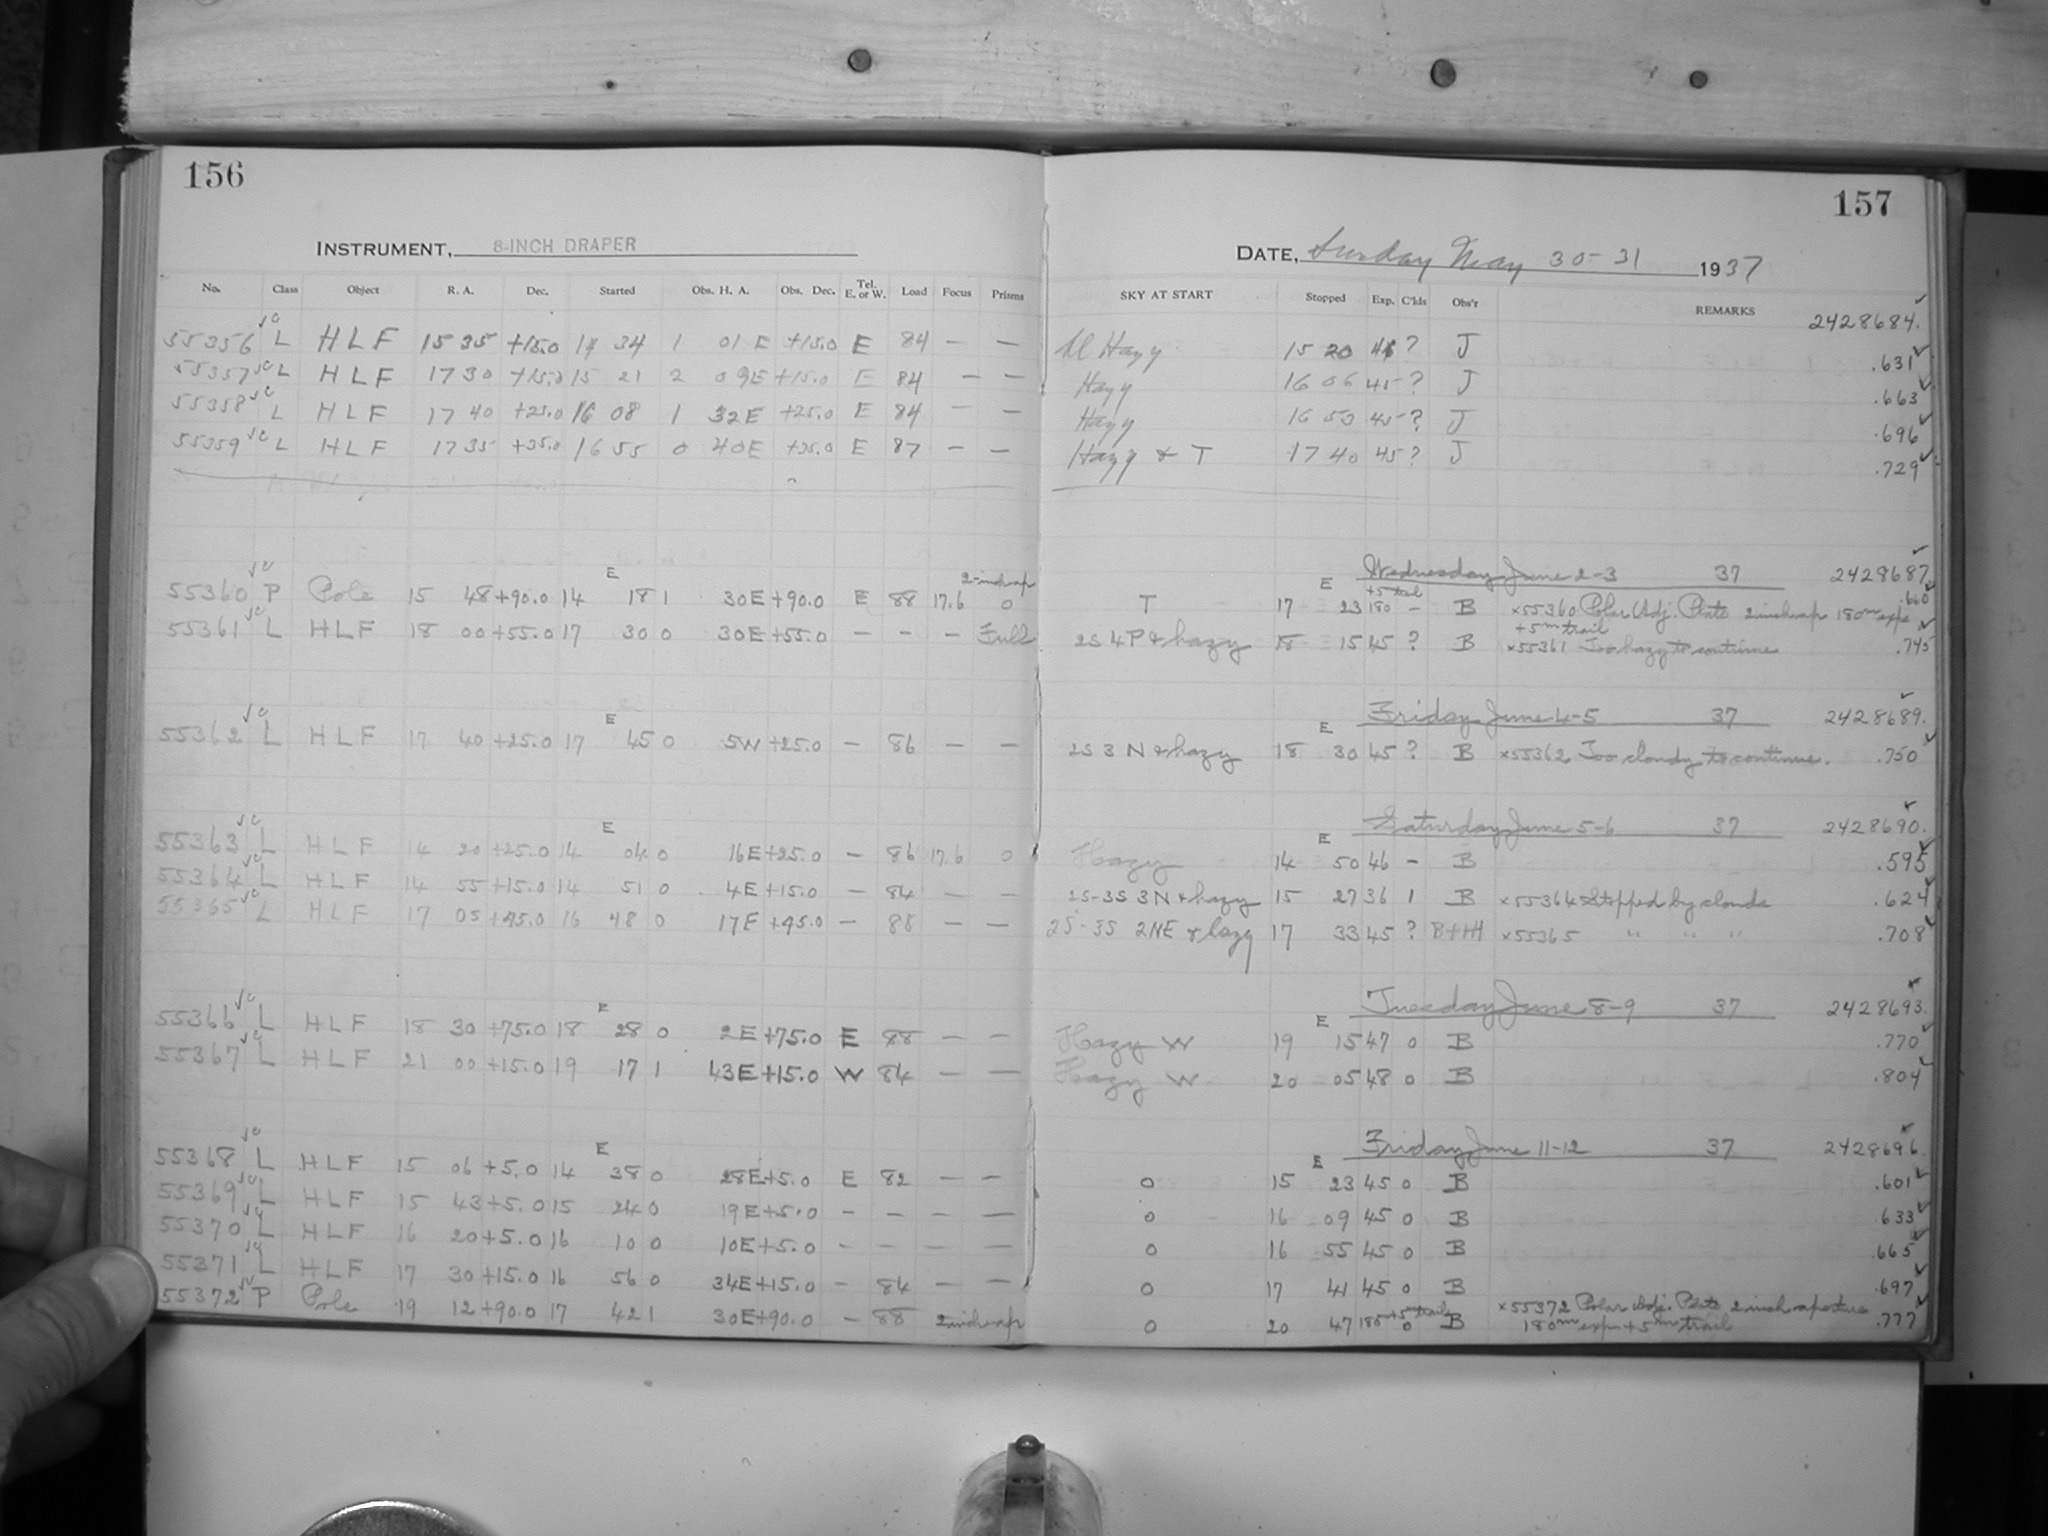 156
INSTRUMENT, 8-INCH DRAPER
No. Class Object R. A. Dec. Started Obs. H. A. Obs. Dec. Tel. E. or W. Load Focus Prisms
55356 L HLF 15 35 +15.0 14 34 1 01 E +15.0 E 84 — —
55357 L HLF 17 30 +15.0 15 21 2 09E +15.0 E 84 — —
55358 L HLF 17 40 +25.0 16 08 1 32E +25.0 E 84 — —
55359 L HLF 17 35 +35.0 16 55 0 40E +35.0 E 87 — —
E 2-inch ap
55360 P Pole 15 48 +90.0 14 18 1 30E +90.0 E 88 17.6 0
55361 L HLF 18 00 +55.0 17 30 0 30E +55.0 — — — Full
E
55362 L HLF 17 40 +25.0 17 45 0 5W +25.0 — 86 — —
E
55363 L HLF 14 20 +25.0 14 04 0 16E +25.0 — 86 17.6 0
55364 L HLF 14 55 +15.0 14 51 0 4E +15.0 — 84 — —
55365 L HLF 17 05 +45.0 16 48 0 17E +45.0 — 88 — —
E
55366 L HLF 18 30 +75.0 18 28 0 2E +75.0 E 88 — —
55367 L HLF 21 00 +15.0 19 17 1 43E +15.0 W 84 — —
E
55368 L HLF 15 06 +5.0 14 38 0 28E +5.0 E 82 — —
55369 L HLF 15 43 +5.0 15 24 0 19E +5.0 — — — —
55370 L HLF 16 20 +5.0 16 10 0 10E +5.0 — — — —
55371 L HLF 17 30 +15.0 16 56 0 34E +15.0 — 84 — —
55372 P Pole 19 12 +90.0 17 42 1 30E +90.0 — 88 2 inch ap
157
DATE, Sunday May 30-31 1937
SKY AT START Stopped Exp. C'lds Obs'r REMARKS
2428684.
Hazy 15 20 46 ? J .631
Hazy 16 06 45 ? J .663
Hazy 16 53 45 ? J .696
Hazy & T 17 40 45 ? J .729
Wednesday June 2-3 37 2428687
E +5 trail
T 17 23 180 — B x55360 Polar Adj. Plate 2 inch ap 180m exp .660
+5m trail
2S 4P & hazy 18 15 45 ? B x55361 Too hazy to continue .745
Friday June 4-5 37 2428689.
E
2S 3N & hazy 18 30 45 ? B x55362 Too cloudy to continue. .750
Saturday June 5-6 37 2428690.
E
Hazy 14 50 46 — B .595
2S-3S 3N & hazy 15 27 36 1 B x55364 Stopped by clouds .624
2S-3S 2NE & hazy 17 33 45 ? B+H x55365 " " " .708
Tuesday June 8-9 37 2428693.
E
Hazy W 19 15 47 0 B .770
Hazy W 20 05 48 0 B .804
Friday June 11-12 37 2428696.
E
0 15 23 45 0 B .601
0 16 09 45 0 B .633
0 16 55 45 0 B .665
0 17 41 45 0 B .697
0 20 47 180m+5m trail 0 B x55372 Polar Adj. Plate 2 inch aperture .777
180m exp + 5m trail